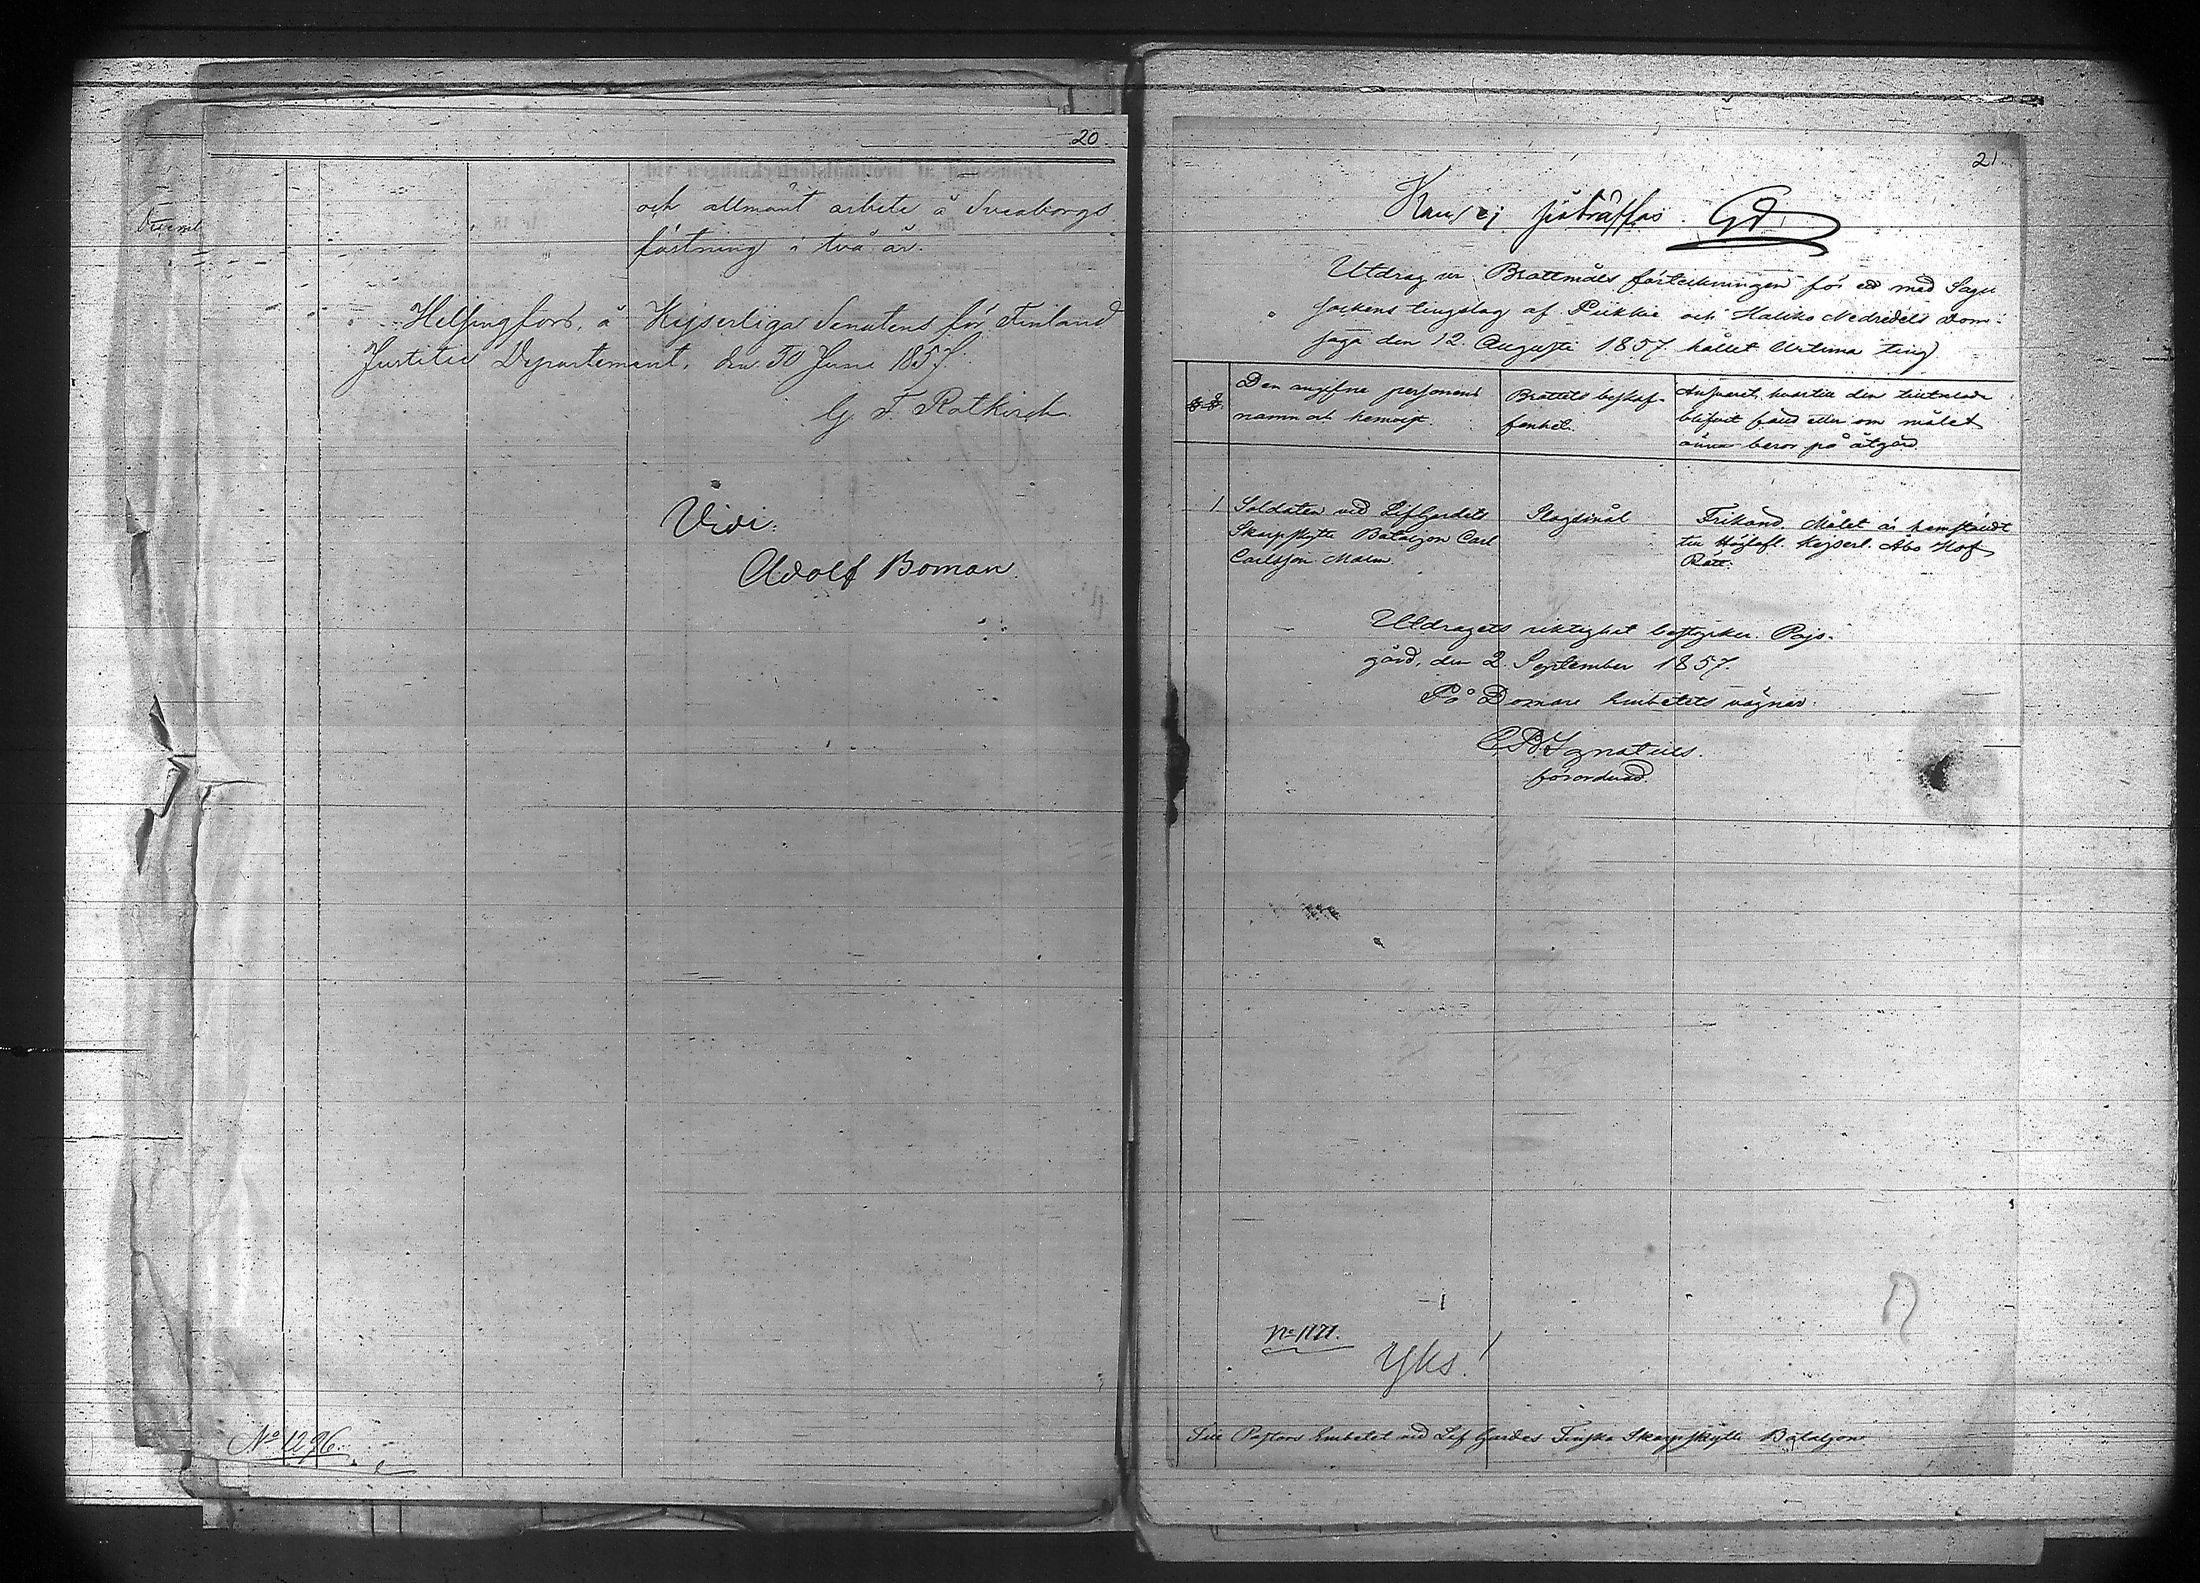 20
och allmänt arbete å Sveaborgs
fästning i två år.
Helsingfors, å Kejserliga Senatens för Finland
Justitie Departement, den 30 Juni 1857.
G. F. Rotkirch
Vidi:
Adolf Boman.
No 1296.
21
Kan ej påträffas. Gd
Utdrag ur Brottmåls förteckningen för ett med Sagu
sockens tingslag af Piikkie och Halikko Nedredels Dom-
saga den 12 Augusti 1857 hållet Urtima ting
§.§. Den angifne personens
namn och hemvist.
Brottets beskaf-
fenhet.
Ansvaret, hvartill den tilltalade
blifvit fäld eller om målet
ännu beror på åtgärd.
1 Soldaten vid LifGardets
Skarpskytte Bataljon Carl
Carlsson Malm
Slagsmål
Frikänd. Målet är hemstäldt
till Höglofl. Kejserl. Åbo Hof
Rätt.
Utdragets riktighet bestyrker. Pajs-
gård, den 2 September 1857.
På Domare Embetets vägnar:
Ignatius.
förordnad.
No 1171.
Yks!
Till Pastors Embetet vid Lif Gardes Finska Skarpskytte Bataljon